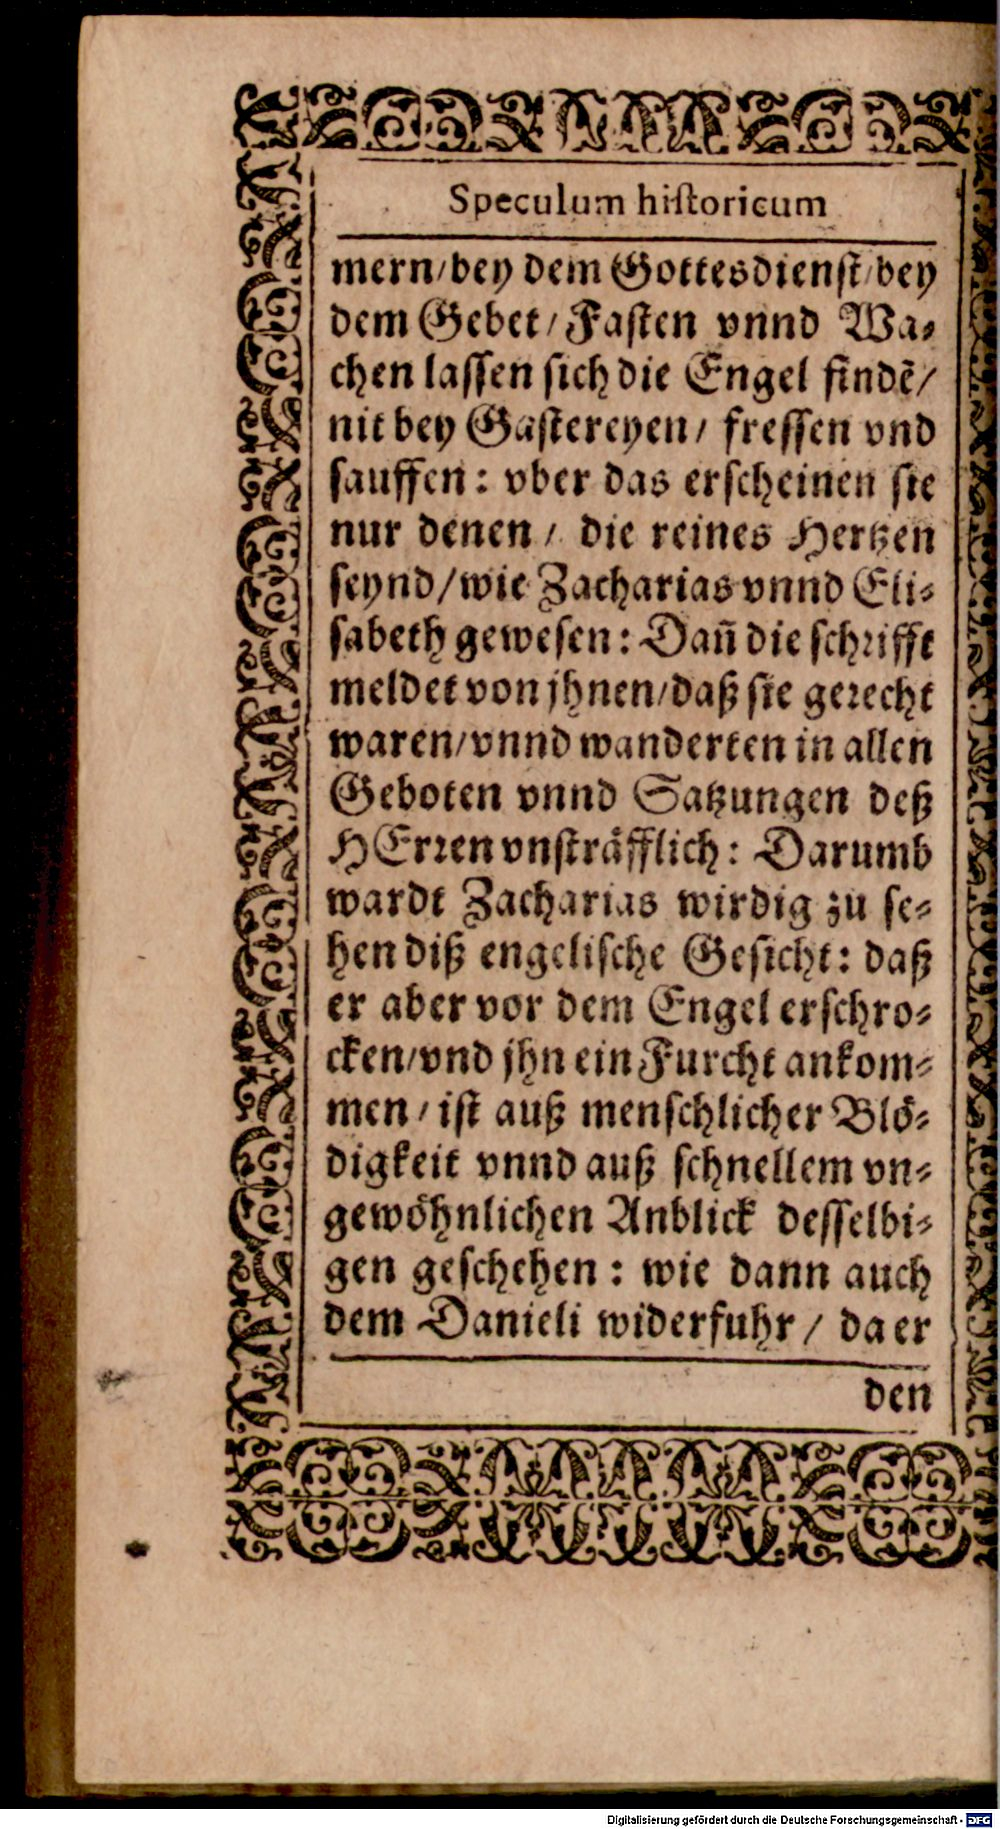 Speculum historicum
mern/bey dem Gottesdienst/bey
dem Gebet/Fasten vnnd Wa⸗
chen lassen sich die Engel findẽ/
nit bey Gastereyen/ fressen vnd
sauffen: vber das erscheinen sie
nur denen/ die reines Hertzen
seynd/wie Zacharias vnnd Eli⸗
sabeth gewesen: Dañ die schrifft
meldet von jhnen/daß sie gerecht
waren/vnnd wanderten in allen
Geboten vnnd Satzungen deß
HErren vnsträfflich: Darumb
wardt Zacharias wirdig zu se⸗
hen diß engelische Gesicht: daß
er aber vor dem Engel erschro⸗
cken/vnd jhn ein Furcht ankom⸗
men/ist auß menschlicher Blö⸗
digkeit vnnd auß schnellem vn⸗
gewöhnlichen Anblick desselbi⸗
gen geschehen: wie dann auch
dem Danieli widerfuhr/ da er
den
Digitalisierung gefördert durch die Deutsche Forschungsgemeinschaft - DFG